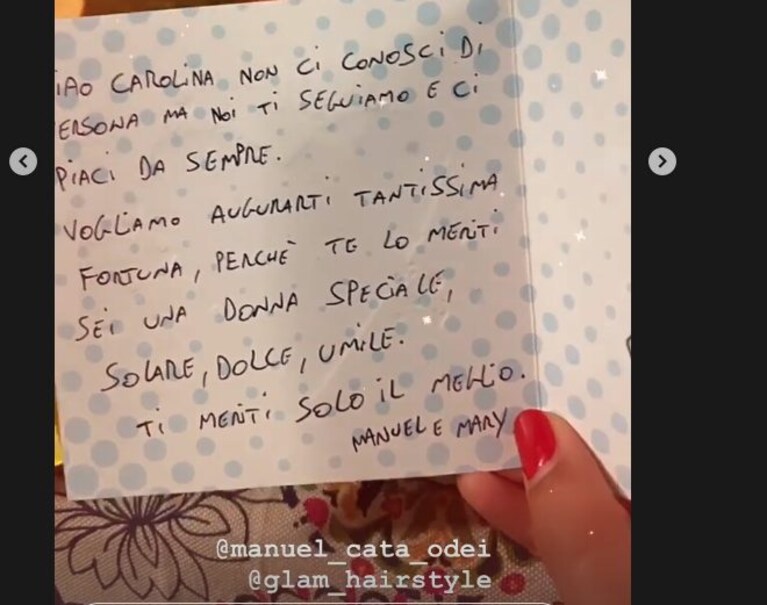 IAO CAROLINA NON CI CONOSCI DI
ERSONA MA NOI TI SEGUIAMO E CI
PIACI DA SEMPRE.
VOGLIAMO AUGURARTI TANTISSIMA
FORTUNA, PERCHÈ TE LO MERITI
SEI UNA DONNA SPECIALE,
SOLARE, DOLCE, UMILE.
TI MERITI SOLO IL MEGLIO.
MANUEL E MARY
@manuel_cata_odei
@glam_hairstyle